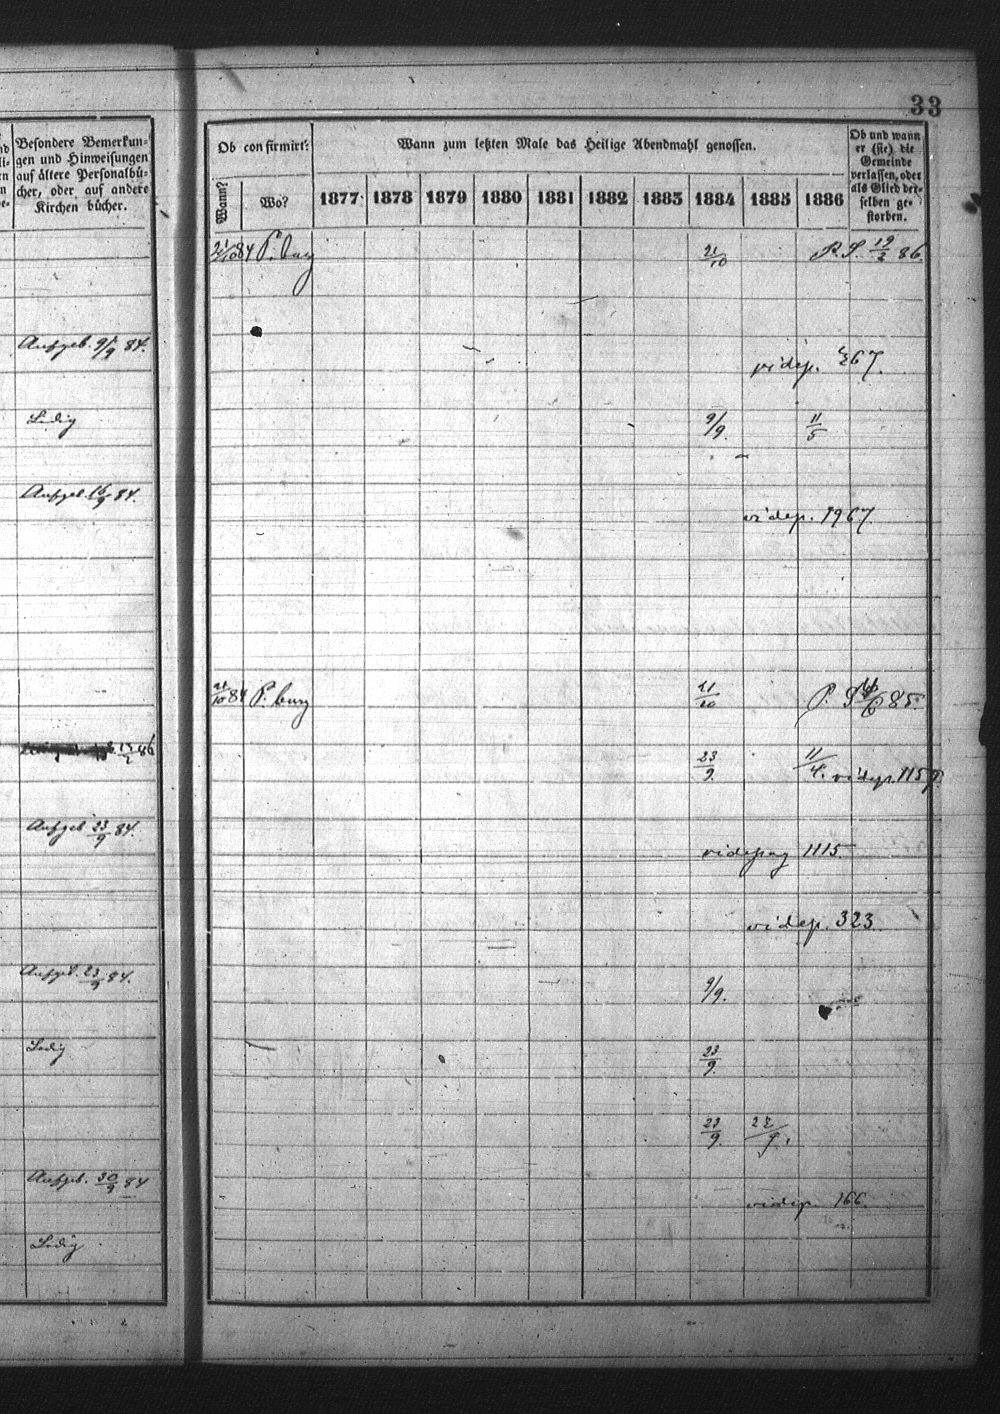 33
Besondere Bemerkun-
gen und Hinweisungen
auf ältere Personalbü-
cher, oder auf andere
Kirchen bücher.
Ob confirmirt:
Wann?
Wo?
Wann zum letzten Male das Heilige Abendmahl genossen.
1877 1878 1879 1880 1881 1882 1883 1884 1885 1886
Ob und wann
er (sie) die
Gemeinde
verlassen, oder
als Glied der-
selben ge-
storben.
21/10 84 P. burg 21/10 P. S. 19/2 86.
Aufgeb. 9/9 84.
vide p. 267.
Ledig 9/9. 11/5
Aufgeb. 16/9 84.
vide p. 1967.
21/10 84 P. burg 21/10 P. S 85.
23/9. 11/4. vide p. 1159.
Aufgeb 23/9 84.
vide pag 1115.
vide p. 323.
Aufgeb. 23/9 84. 9/9.
Ledig 23/9.
23/9. 22/9.
Aufgeb. 30/9 84
vide p. 166.
Ledig